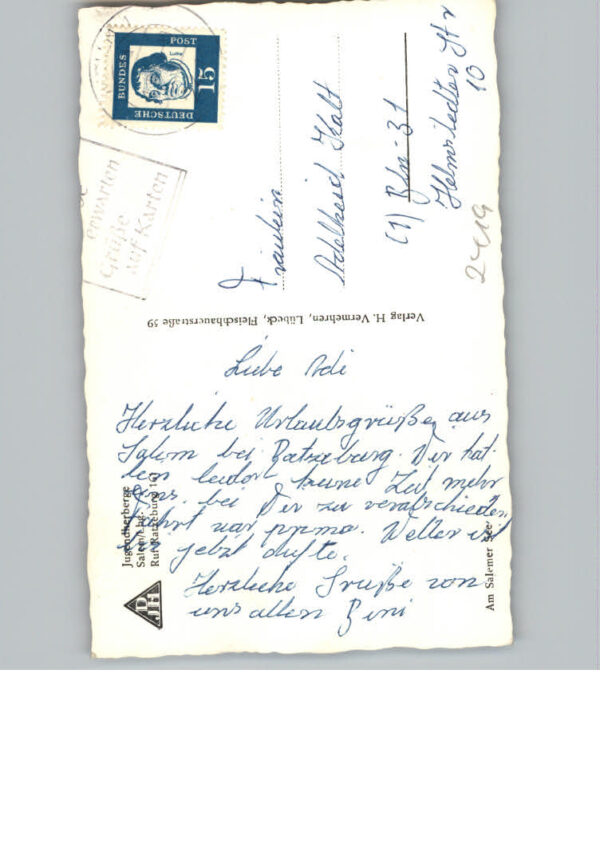 DEUTSCHE
BUNDES
POST
15
erwarten
Grüße
auf Karten
Fräulein
Adelheid Kalt
(1) Bln-31
Helmstedter Str
10
2419
Verlag H. Vermehren, Lübeck, Fleischhauerstraße 59
Liebe Adi
Herzliche Urlaubsgrüße aus
Salem bei Ratzeburg. Wir hat-
ten leider keine Zeit mehr
uns bei Dir zu verabschieden
Fahrt war prima. Wetter ist
jetzt dufte.
Herzliche Grüße von
uns allen Bini
Jugendherberge
Salem/Lbg.
Ruf Ratzeburg
DJH
Am Salemer See